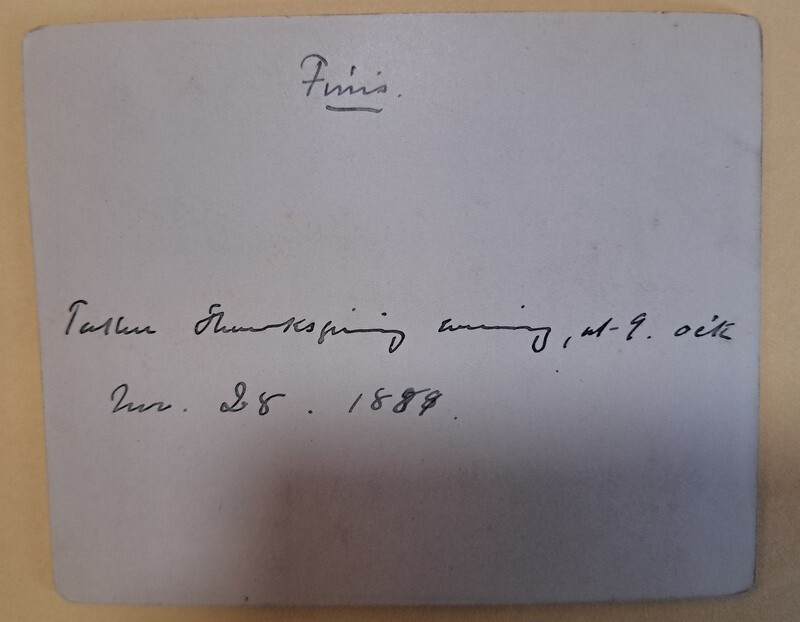 Finis.
Taken Thanksgiving evening, at 9. ock
Nov. 28. 1889.